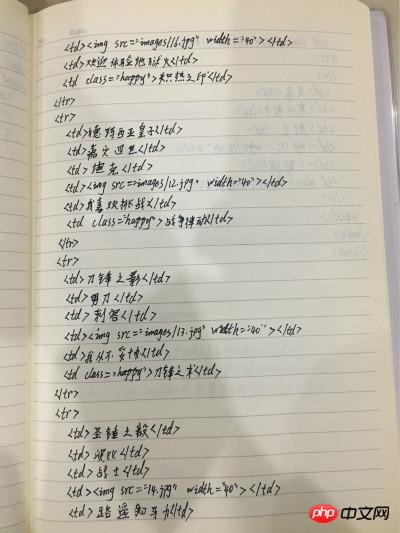 <td><img src="images/16.jpg" width="40"></td>
<td>欢迎体验地狱火</td>
<td class="happy">炽热之印</td>
</tr>
<tr>
<td>德玛西亚皇子</td>
<td>嘉文四世</td>
<td>坦克</td>
<td><img src="images/12.jpg" width="40"></td>
<td>我喜欢挑战</td>
<td class="happy">战争律动</td>
</tr>
<tr>
<td>刀锋之影</td>
<td>男刀</td>
<td>刺客</td>
<td><img src="images/13.jpg" width="40"></td>
<td>我从不妥协</td>
<td class="happy">刀锋之</td>
</tr>
<tr>
<td>圣锤之毅</td>
<td>波比</td>
<td>战士</td>
<td><img src="14.jpg" width="40"></td>
<td>路遥知马力</td>
php中文网